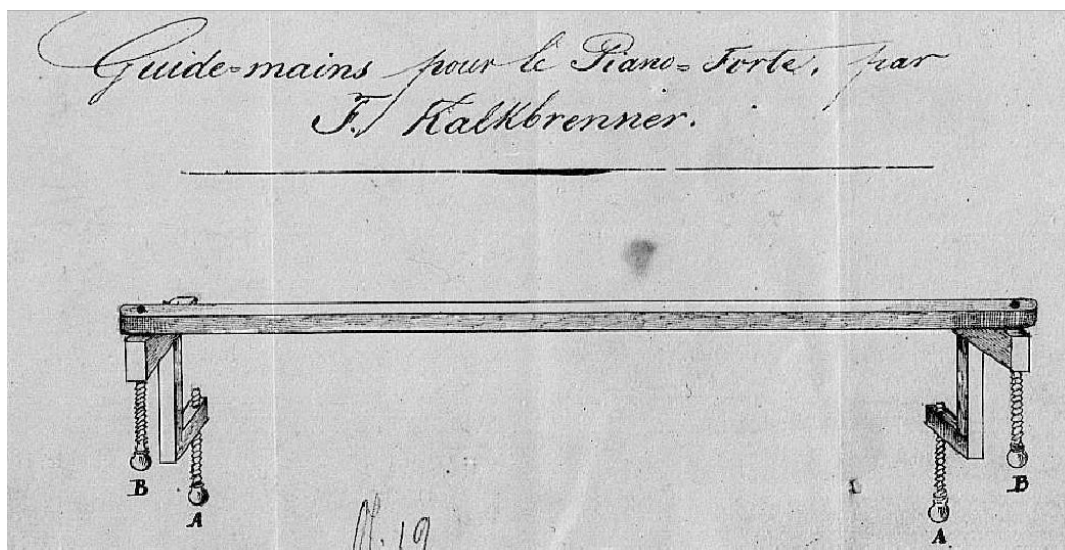 Guide=mains pour le Piano=Forte, par
F. Kalkbrenner.
B
A
B
A